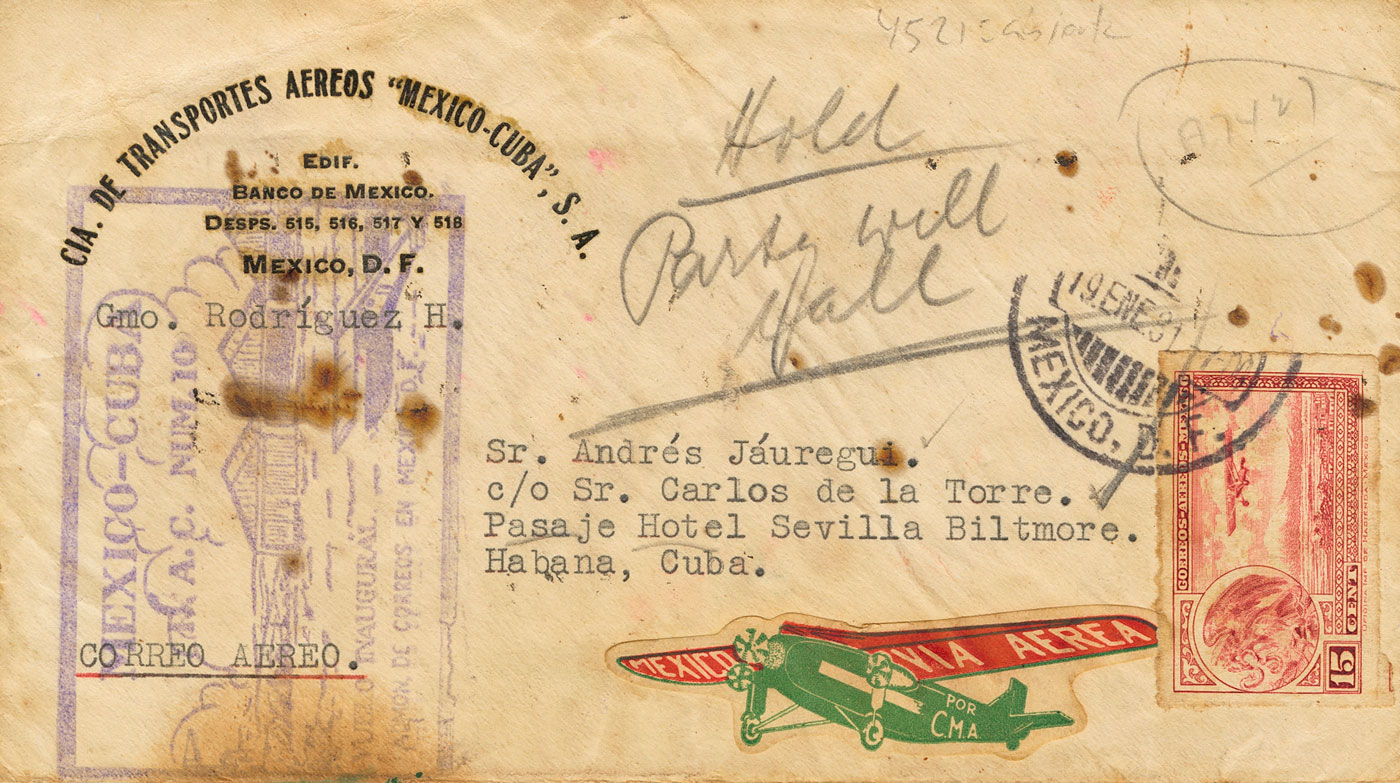 CIA. DE TRANSPORTES AEREOS "MEXICO-CUBA", S. A.
EDIF.
BANCO DE MEXICO.
DESPS. 515, 516, 517 Y 518
MEXICO, D. F.
Gmo. Rodríguez H.
MEXICO-CUBA
F.A.C. NUM. 10
VUELO INAUGURAL
DE CORREOS EN MEXICO D.F.
CORREO AEREO.
4521
Hold
Party will
Call
19.ENE.31
MEXICO. D. F.
Sr. Andrés Jáuregui.
c/o Sr. Carlos de la Torre.
Pasaje Hotel Sevilla Biltmore.
Habana, Cuba.
MEXICO VIA AEREA
POR
C.M.A
CORREOS AEREOS MEXICO
15 CENT